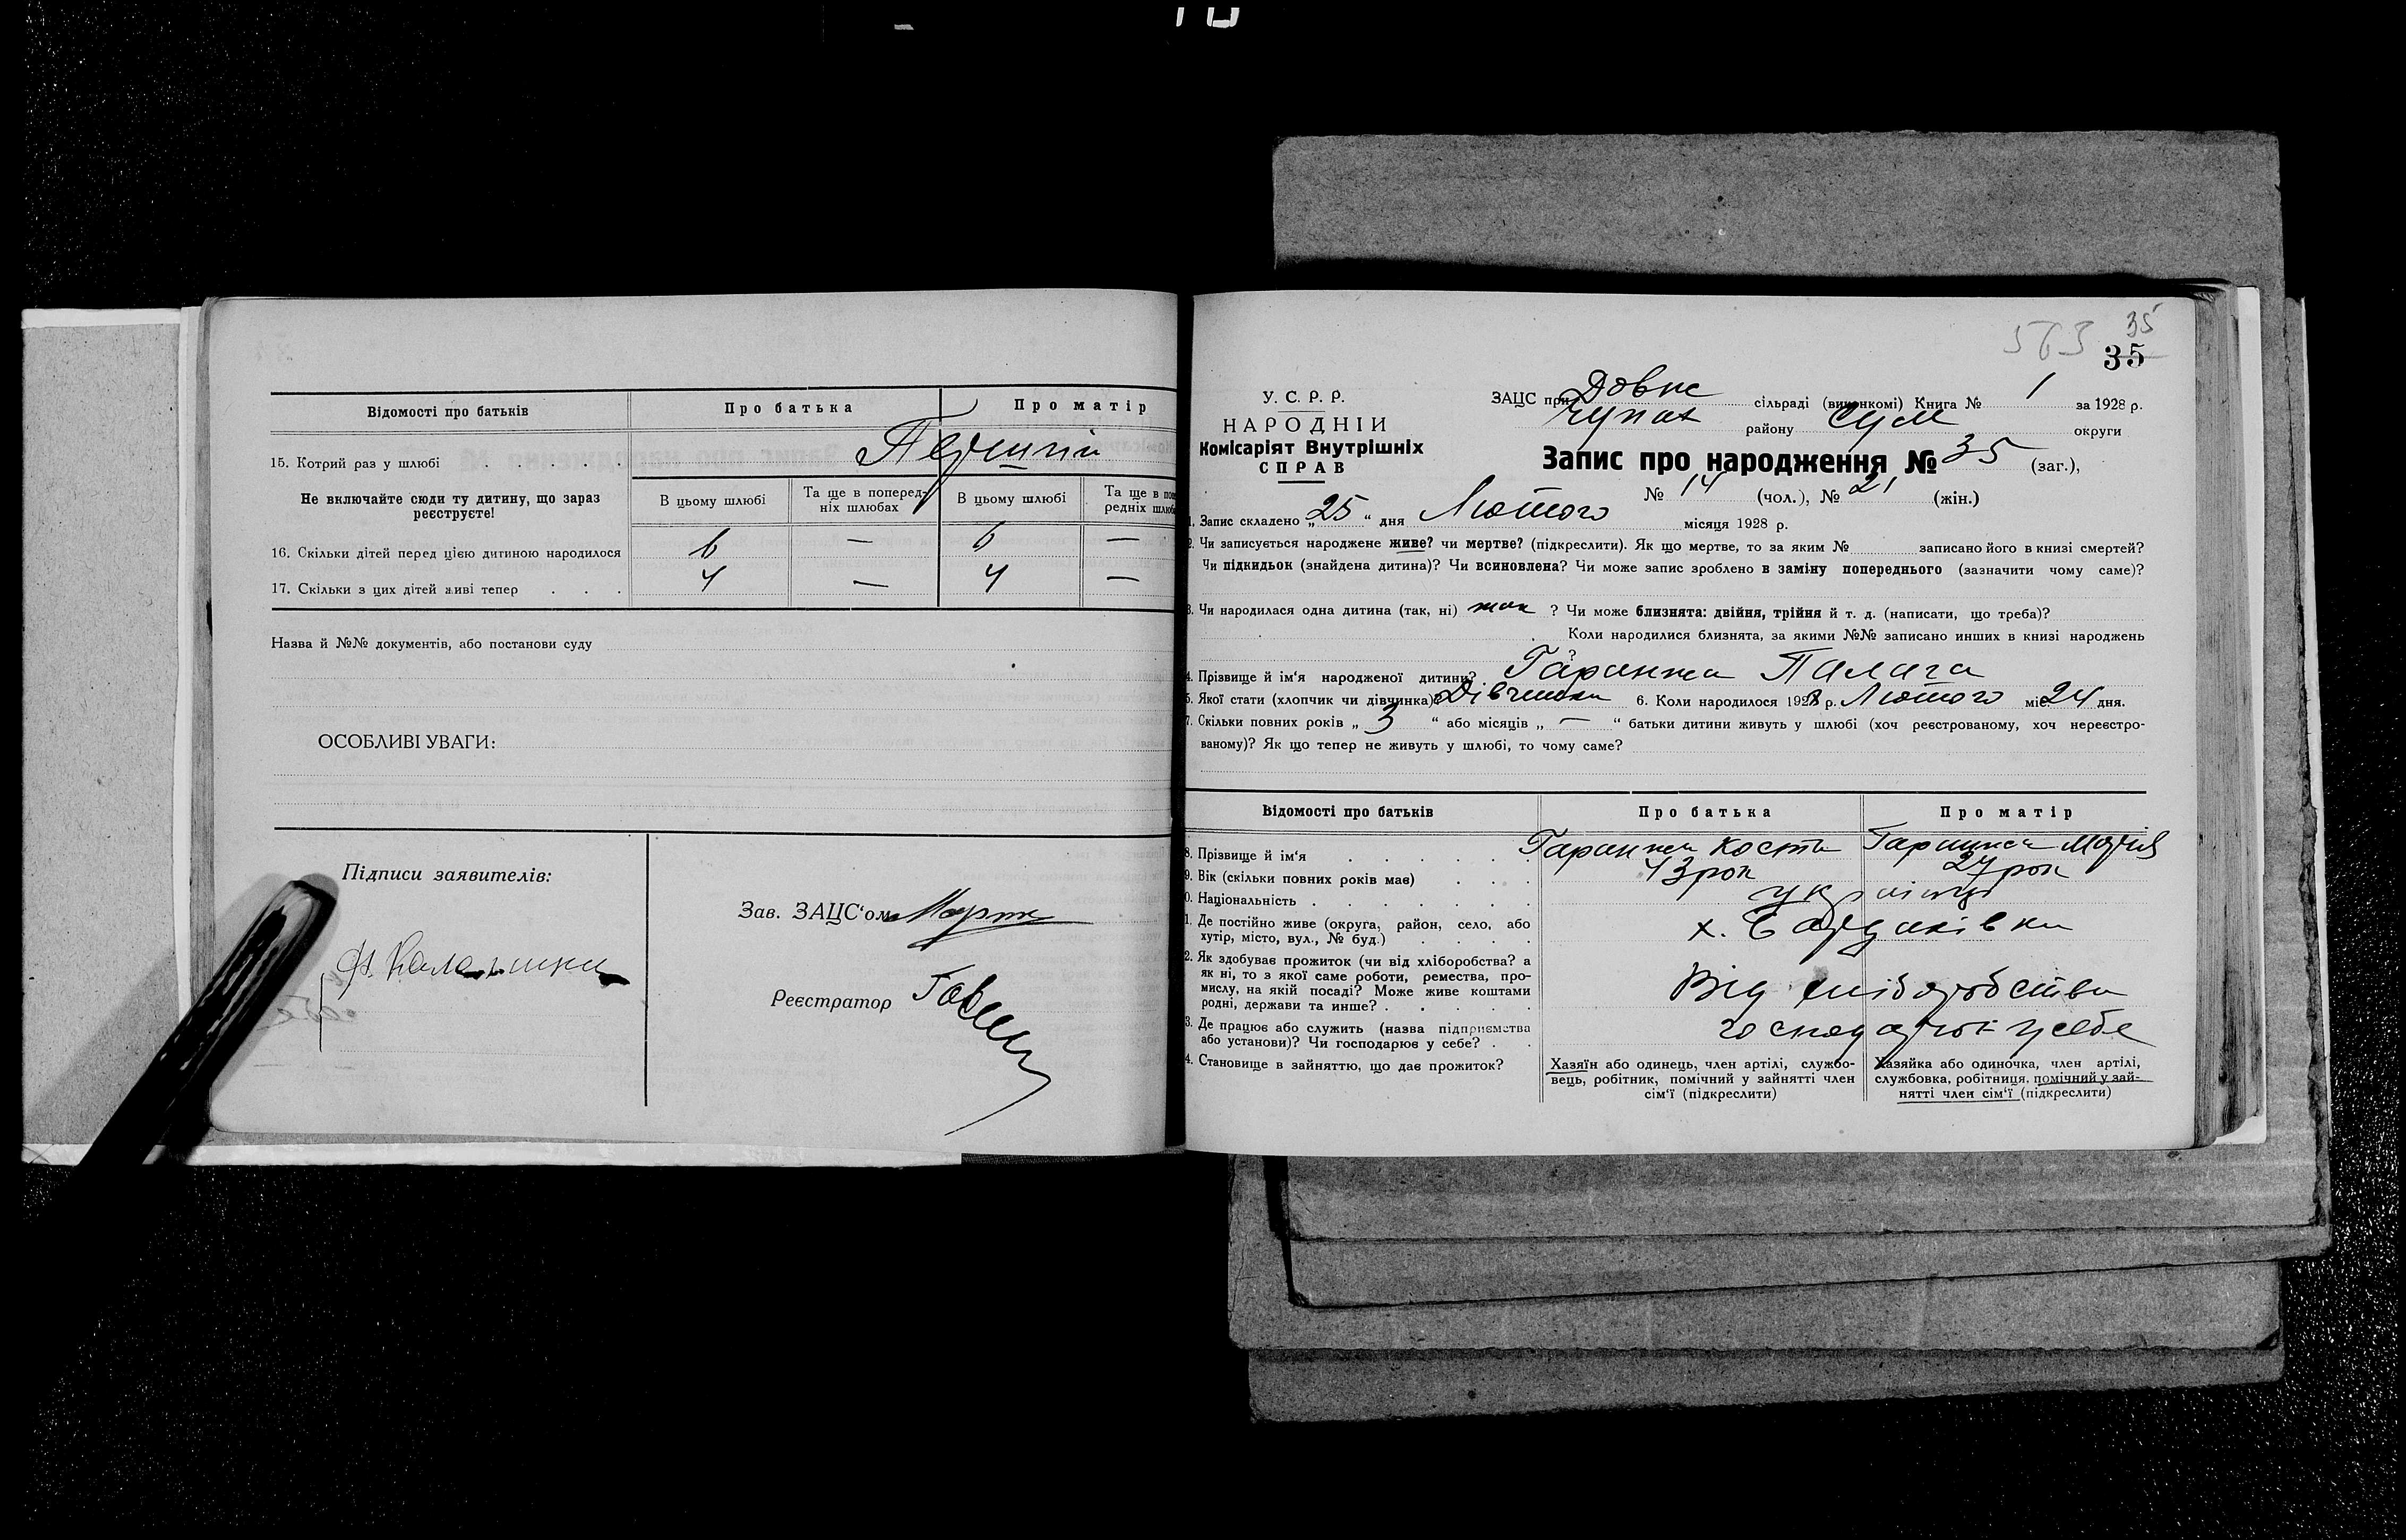 Відомості про батьків Про батька Про матір
15. Котрий раз у шлюбі Перший
Не включайте сюди ту дитину, що зараз реєструєте!
В цьому шлюбі Та ще в поперед-ніх шлюбах В цьому шлюбі Та ще в редніх
16. Скільки дітей перед цією дитиною народилося 6 — 6 —
17. Скільки з цих дітей живі тепер 4 — 4 —
Назва й №№ документів, або постанови суду
ОСОБЛИВІ УВАГИ:
Підписи заявителів:
Зав. ЗАЦС‘ом
Реєстратор
35
35
У. С. Р. Р.
НАРОДНІЙ
Комісаріят Внутрішніх
СПРАВ
ЗАЦС при Довж сільраді (виконкомі) Книга № 1 за 1928 р.
району Сум округи
Запис про народження № 35 (заг.),
№ 14 (чол.), № 21 (жін.)
1. Запис складено „25“ дня Лютого місяця 1928 р.
2. Чи записується народжене живе? чи мертве? (підкреслити). Як що мертве, то за яким № записано його в книзі смертей?
Чи підкидьок (знайдена дитина)? Чи всиновлена? Чи може запис зроблено в заміну попереднього (зазначити чому саме)?
3. Чи народилася одна дитина (так, ні) так ? Чи може близнята: двійня, трійня й т. д. (написати, що треба)?
Коли народилися близнята, за якими №№ записано инших в книзі народжень
?
4. Прізвище й ім‘я народженої дитини? Гаранжа Палага
5. Якої стати (хлопчик чи дівчинка)? Дівчинка 6. Коли народилося 1928 р. Лютого міс. 24 дня.
7. Скільки повних років „ 3 “ або місяців „ — “ батьки дитини живуть у шлюбі (хоч реєстрованому, хоч нереєстро-
ваному)? Як що тепер не живуть у шлюбі, то чому саме?
Відомості про батьків Про батька Про матір
8. Прізвище й ім‘я Гаранжа Гаранжа
9. Вік (скільки повних років має) 43 рок 27 рок
0. Національність українці
1. Де постійно живе (округа, район, село, або
хутір, місто, вул., № буд.) х.
2. Як здобуває прожиток (чи від хліборобства? а
як ні, то з якої саме роботи, ремества, про-
мислу, на якій посаді? Може живе коштами
родні, держави та инше? Від хліборобства
3. Де працює або служить (назва підприємства
або установи)? Чи господарює у себе? у себе
4. Становище в зайняттю, що дає прожиток?
Хазяїн або одинець, член артілі, службо-
вець, робітник, помічний у зайнятті член
сім‘ї (підкреслити)
Хазяйка або одиночка, член артілі,
службовка, робітниця, помічний у зай-
нятті член сім‘ї (підкреслити)